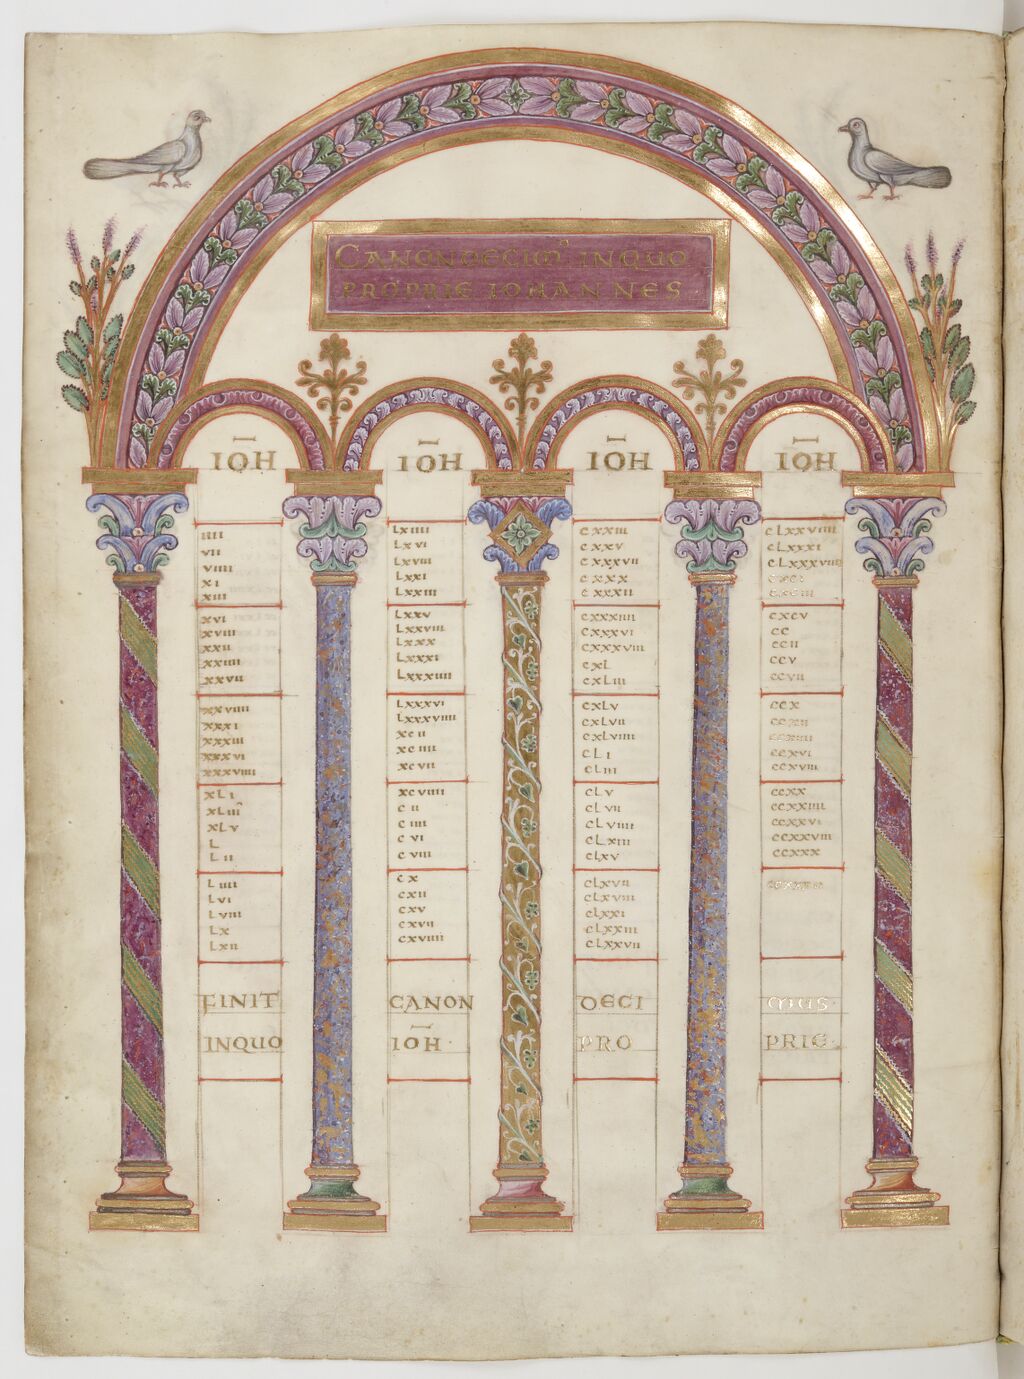 CANON DECIM' IN QUO
PROPRIE IOHANNES
IOH
IIII
VII
VIIII
XI
XIII
XVI
XVIII
XXII
XXIIII
XXVII
XXVIIII
XXXI
XXXIII
XXXVI
XXXVIIII
XLI
XLIII
XLV
L
LII
LIIII
LVI
LVIII
LX
LXII
IOH
LXIIII
LXVI
LXVIII
LXXI
LXXIII
LXXV
LXXVIII
LXXX
LXXXI
LXXXIIII
LXXXVI
LXXXVIIII
XCII
XCIIII
XCVII
XCVIIII
CII
CIIII
CVI
CVIII
CX
CXII
CXV
CXVII
CXVIIII
IOH
CXXIII
CXXV
CXXVII
CXXX
CXXXII
CXXXIIII
CXXXVI
CXXXVIII
CXL
CXLIII
CXLV
CXLVII
CXLVIIII
CLI
CLIII
CLV
CLVII
CLVIIII
CLXIII
CLXV
CLXVII
CLXVIII
CLXXI
CLXXIII
CLXXVII
IOH
CLXXVIIII
CLXXXI
CLXXXVIII
CXCI
CXCIII
CXCV
CC
CCII
CCV
CCVII
CCX
CCXII
CCXIIII
CCXVI
CCXVIII
CCXX
CCXXIIII
CCXXVI
CCXXVIII
CCXXX
FINIT CANON DECI MUS·
INQUO IOH· PRO PRIE·